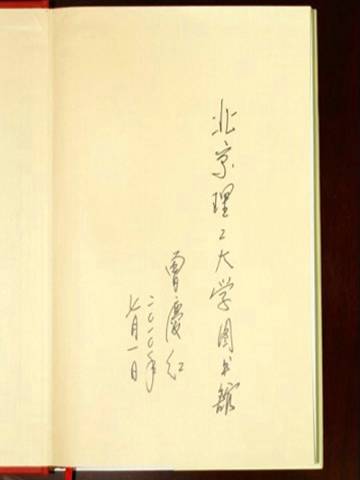 北京理工大学图书館
曾慶红
二〇一〇年
七月一日